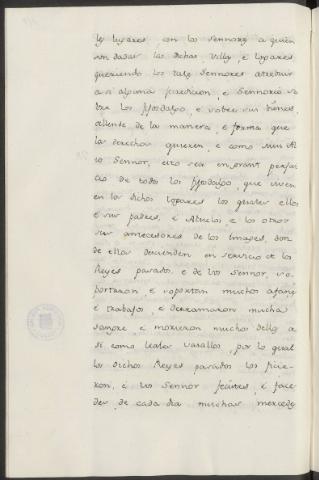 les lugares con los sennores a quien
son dadas las dichas villas e logares
queriendo los tales sennores atribuir
a si alguna jurediçion, e sennorio so
bre los fijosdalgo, e sobre sus bienes,
allende de la manera e forma que
los derechos quieren, e como muy Al
to Sennor, esto sea en grant perjui
cio de todos los fijosdalgo, que viven
en los dichos logares los quales ellos
e sus padres, e Abuelos e los otros
sus antecesores de los linages, don
de ellos decienden en serviçio de los
Reyes pasados e de vos Sennor, so
portaron e soportan muchos afanes
e trabajos, e derramaron mucha
sangre e morieron muchos dellos a
si como leales vasallos, por lo qual
los dichos Reyes pasados los ficie
ron, e vos Sennor fecistes, e face
des de cada dia muchas mercedes